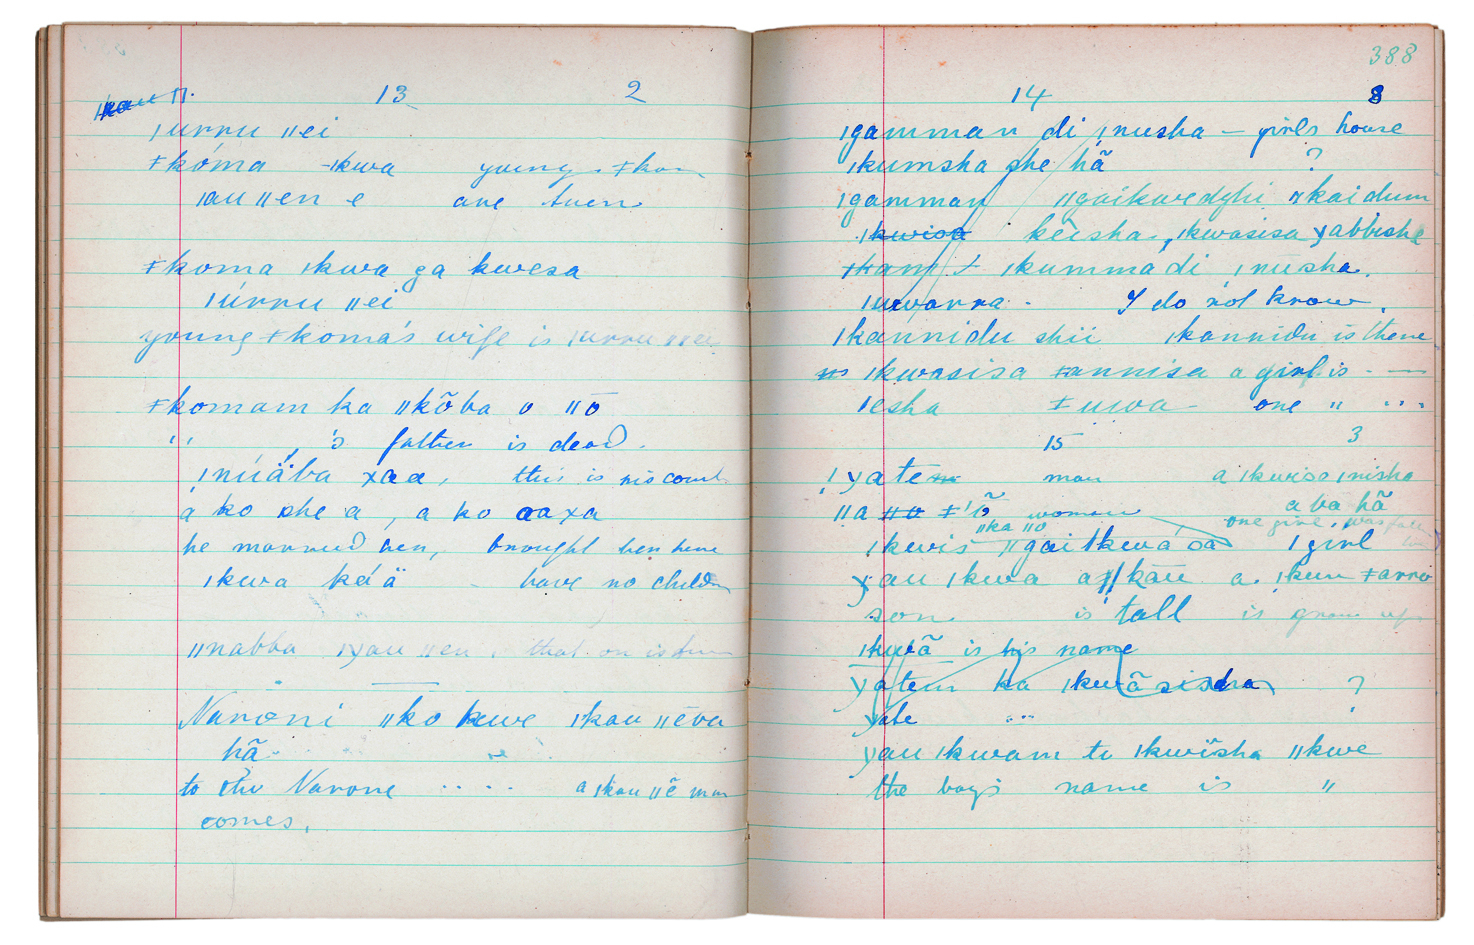 13 2
ǀurru ǁei
ǂkóma ǀkwa young ǂkom
ǀau ǁen e are twen
ǂkoma ǀkwa ga kwesa
ǀúrru ǁei
young ǂkoma's wife is ǀurru ǁei
ǂkomam ka ǁkõba o ǁō
" " 's father is dead.
ǀnúäba xaa, this is his count
a ko she a, a ko aaxa
he married her, brought her here
ǀkwa káä - have no childn
ǁnabba ǀyau ǁen, that on is
Naroni ǁko kwe ǀkau ǁēva
hã
to the Narone .... a ǀkau ǁẽ man
comes.
388
14 3
ǀgamman di ǀnusha - girls house
ǀkumsha she hã ?
ǀgamman ǁgaikwedyhi ǁkaidum
ǀkwisa keisha, ǀkwasisa yabbisha
ǂkam ǂ ǀkummadi ǀnusha.
ǀuwarra - I do not know.
ǀkannidu shii ǀkannidu is there
ǀkwasisa ǂannisa a girl is - —
ǀesha ǂuwa - one " ...
15 3
ǀyatem man a ǀkwisa ǀnisha
ǁa ǁa ǂ'õ woman a ba hã
ǁka ǁo one girl, was
ǀkwis ǁgaiǀkwá oa 1 girl
yau ǀkwa aǁkāu a. ǀkum ǂarro
son is tall is grown up
ǀkwã is his name
yatem ka ǀkwãsisha ?
yate ...
yau ǀkwam te ǀkwĩsha ǁkwe
the boys name is "